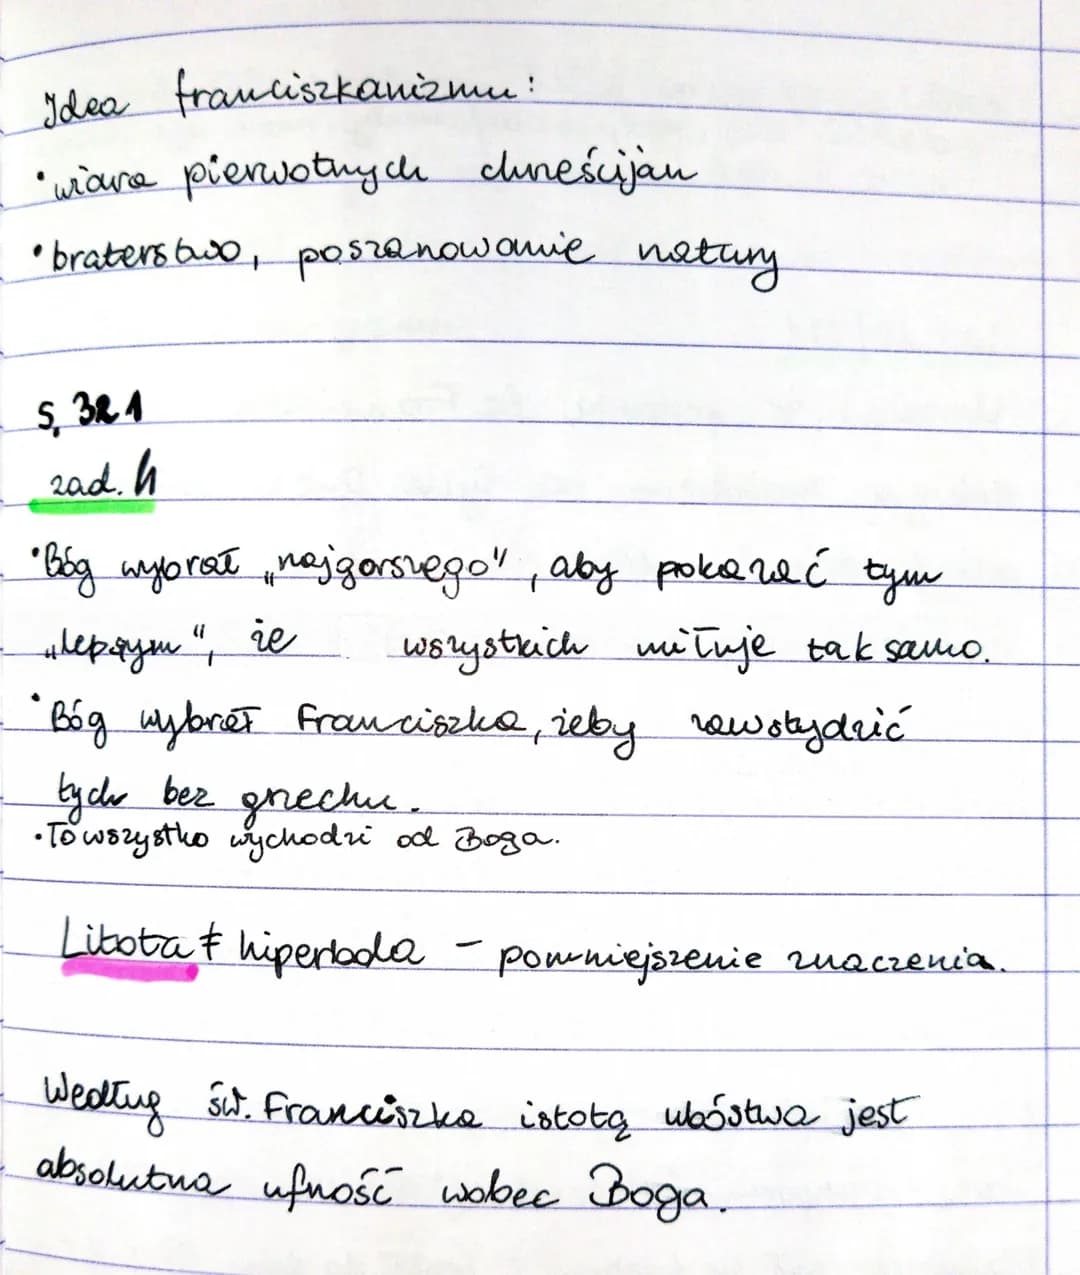 Idea franciszkanizmu:
• wiara pierwotnych chrześcijan
• braterstwo, poszanowanie natury
s. 321
zad. 4
• Bóg wybrał „najgorszego", aby pokazać tym
„lepszym", że wszystkich miłuje tak samo.
• Bóg wybrał Franciszka, żeby zawstydzić
tych bez grzechu.
• To wszystko wychodzi od Boga.
Litota ≠ hiperbola – pomniejszenie znaczenia.
Według św. Franciszka istotą ubóstwa jest
absolutna ufność wobec Boga.